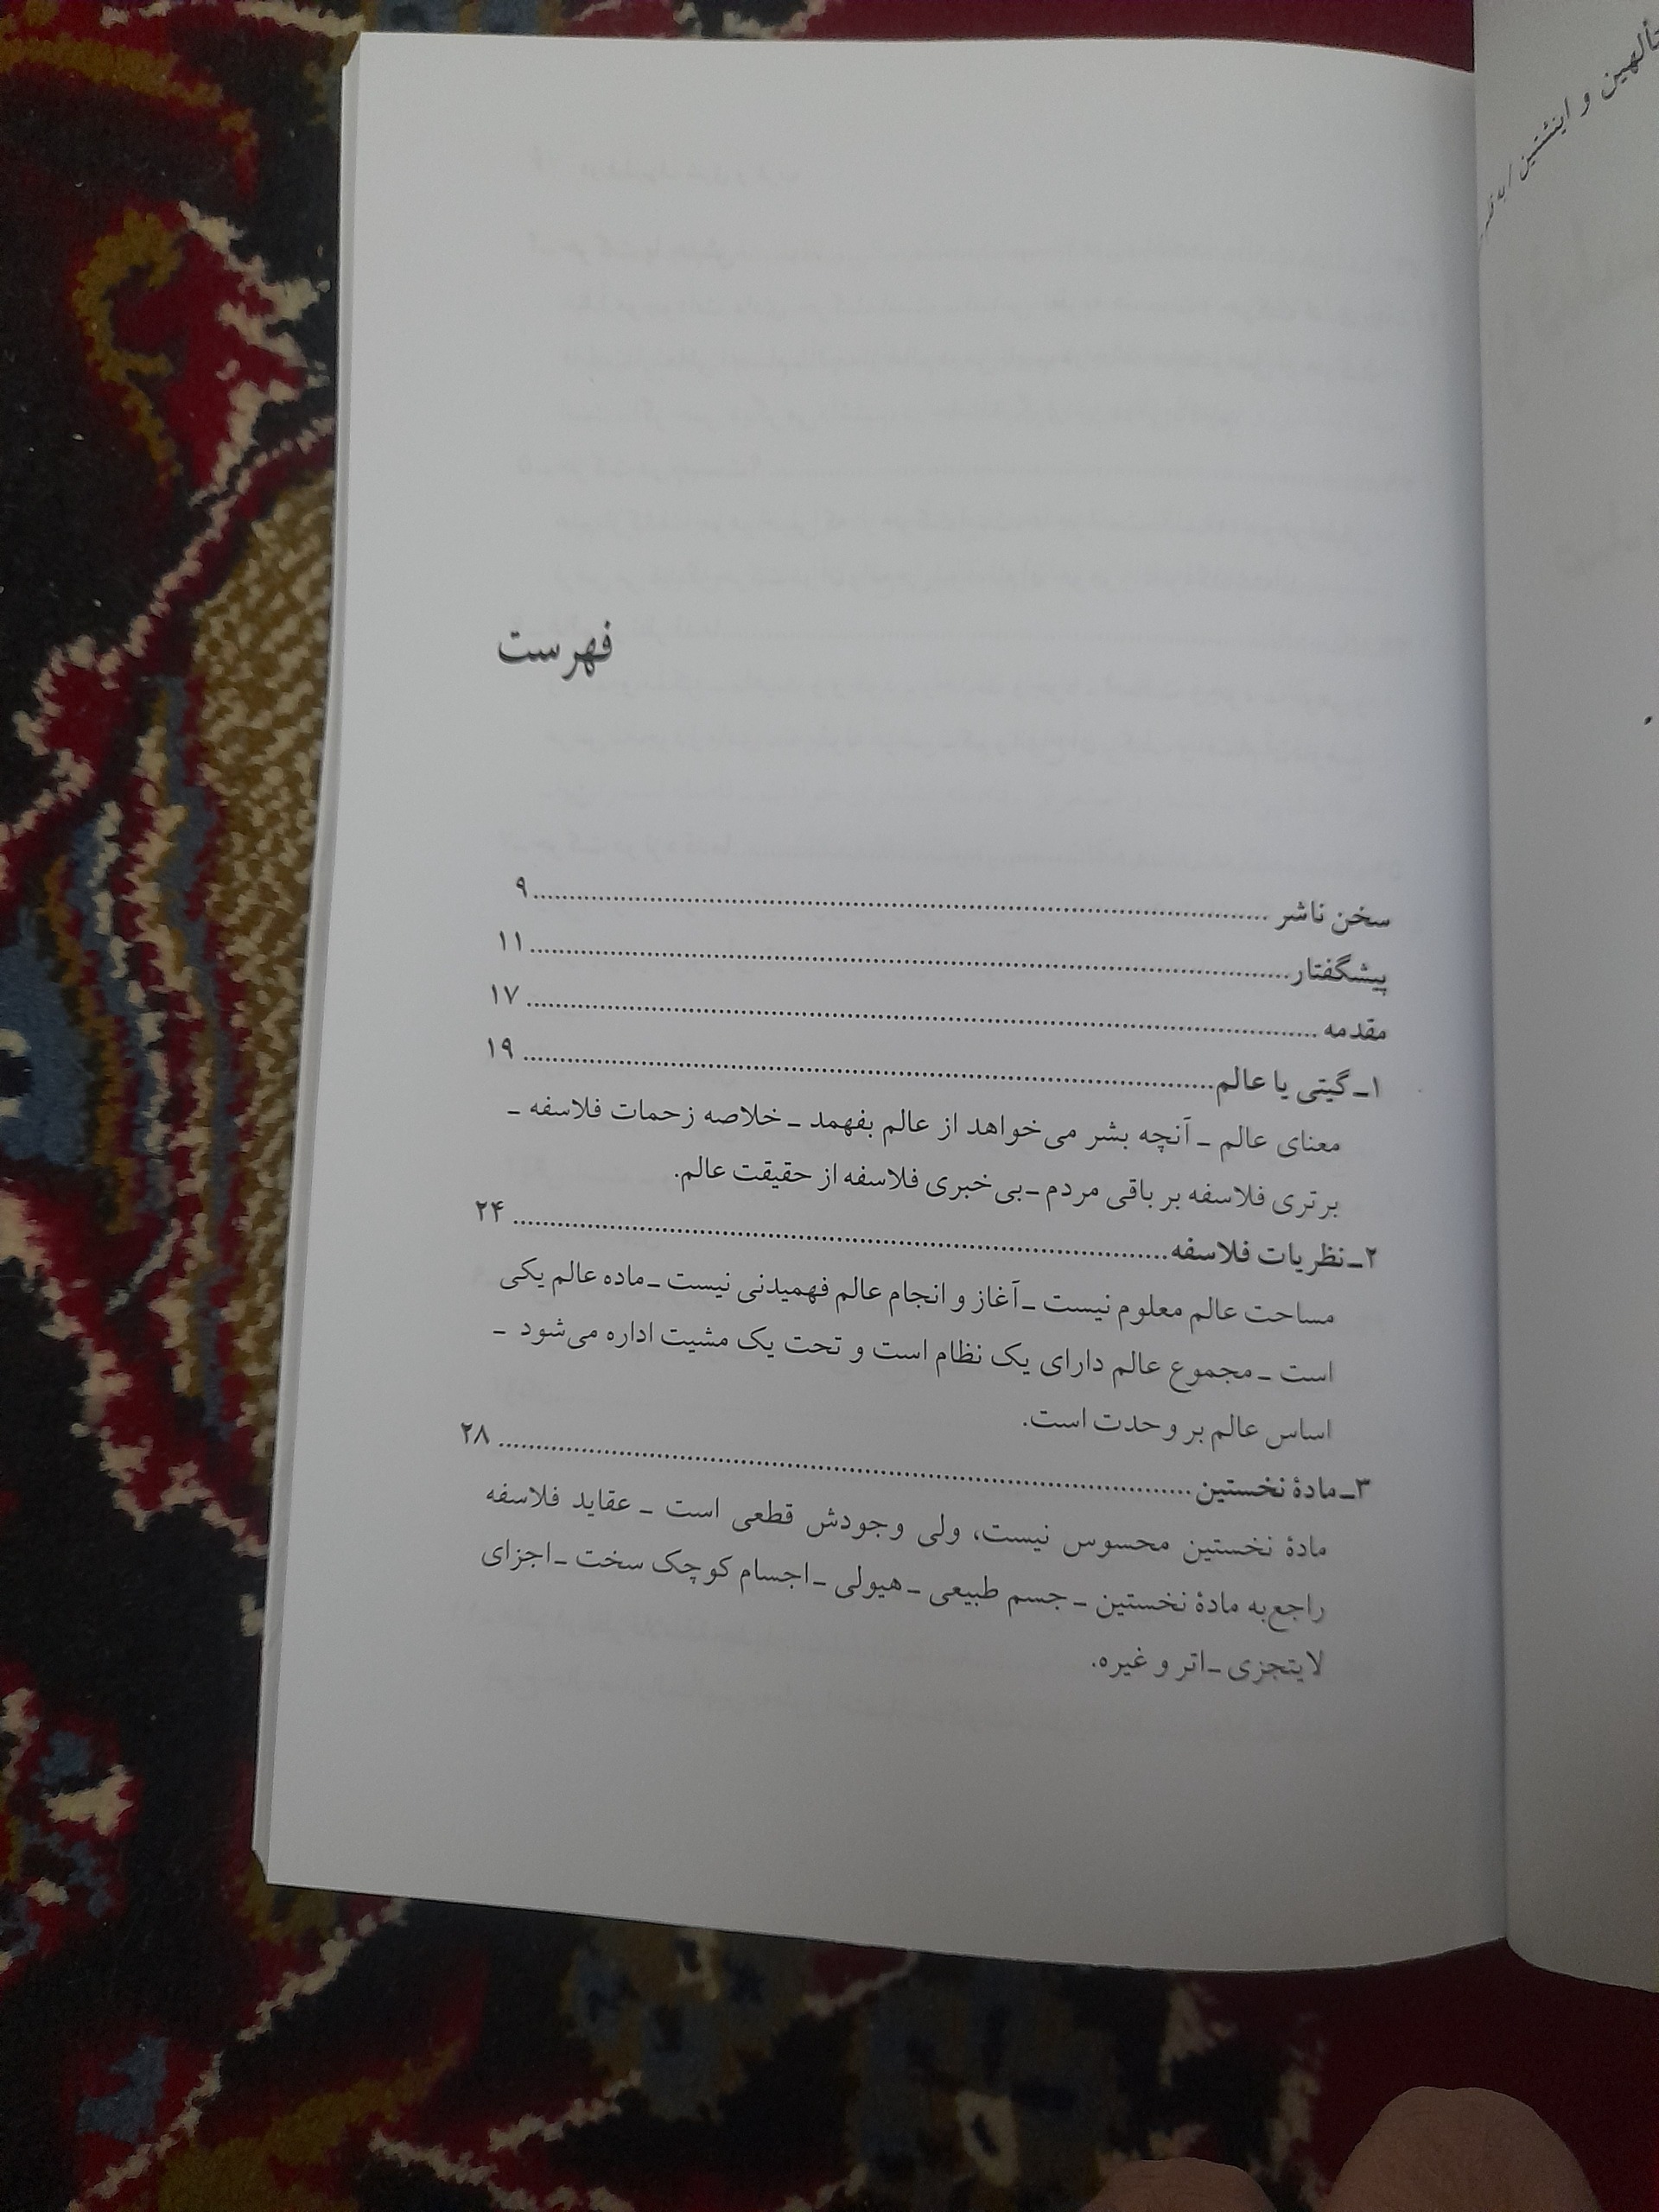 فهرست
سخن ناشر ........ ۹
پیشگفتار ........ ۱۱
مقدمه ........ ۱۷
۱ـ گیتی یا عالم ........ ۱۹
معنای عالم ـ آنچه بشر می‌خواهد از عالم بفهمد ـ خلاصه زحمات فلاسفه ـ
برتری فلاسفه بر باقی مردم ـ بی‌خبری فلاسفه از حقیقت عالم.
۲ـ نظریات فلاسفه ........ ۲۴
مساحت عالم معلوم نیست ـ آغاز و انجام عالم فهمیدنی نیست ـ ماده عالم یکی
است ـ مجموع عالم دارای یک نظام است و تحت یک مشیت اداره می‌شود ـ
اساس عالم بر وحدت است.
۳ـ مادهٔ نخستین ........ ۲۸
مادهٔ نخستین محسوس نیست، ولی وجودش قطعی است ـ عقاید فلاسفه
راجع‌به مادهٔ نخستین ـ جسم طبیعی ـ هیولی ـ اجسام کوچک سخت ـ اجزای
لایتجزی ـ اتر و غیره.
و اینشتین